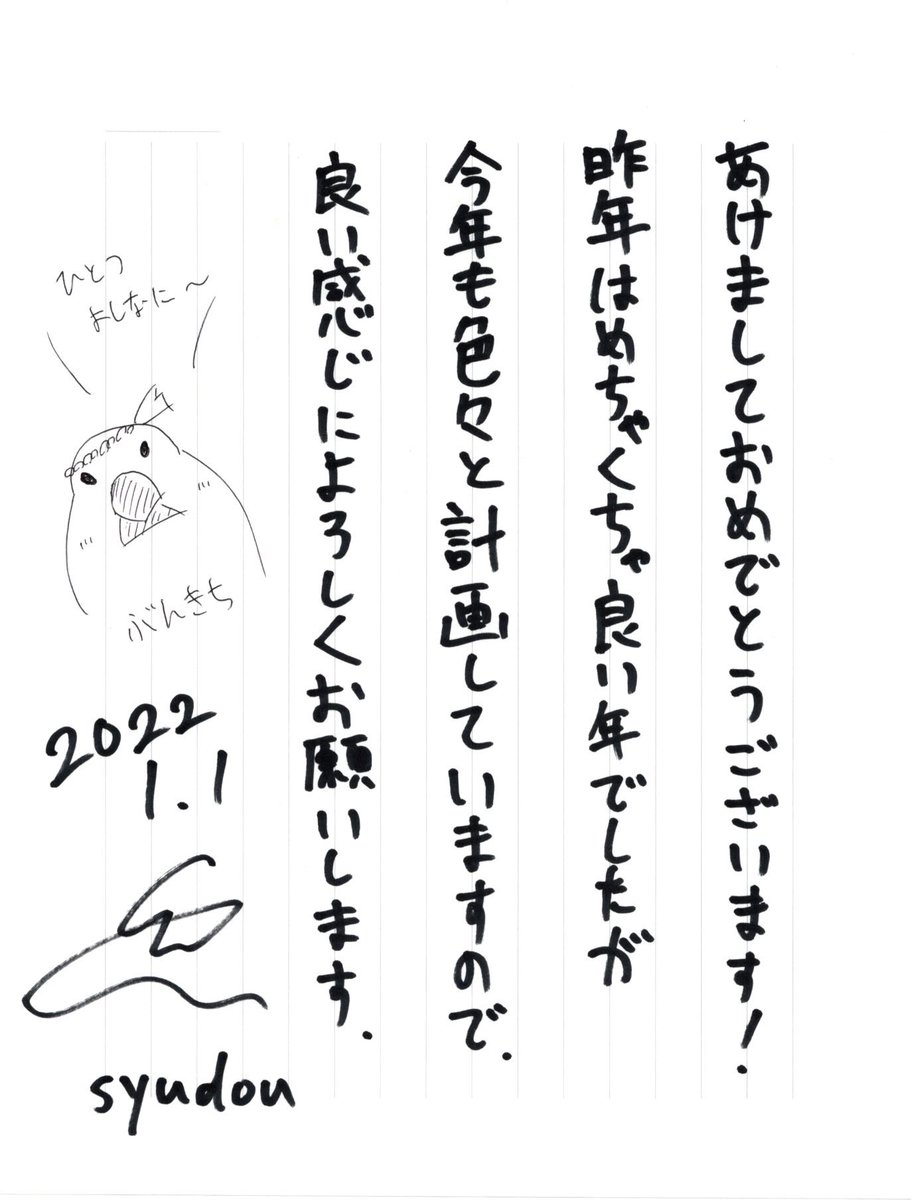 あけましておめでとうございます!
昨年はめちゃくちゃ良い年でしたが
今年も色々と計画していますので.
良い感じによろしくお願いします.
ひとつ
よしなに〜
ぶんきち
2022
1.1
syudou